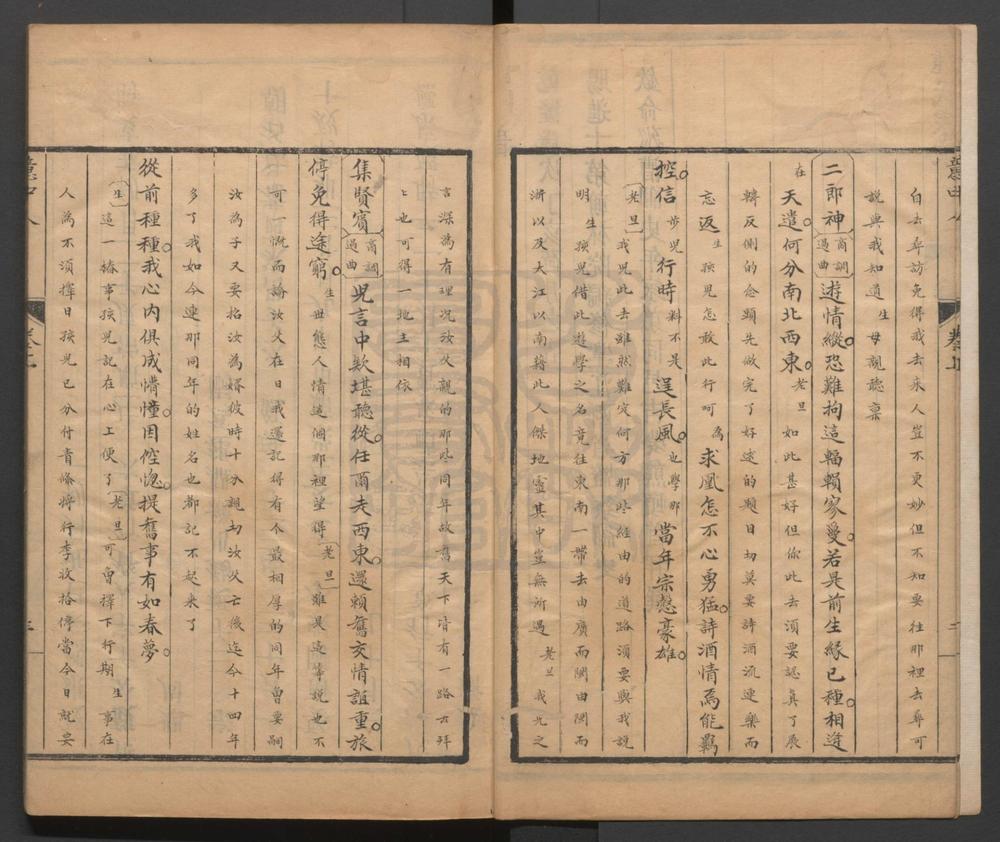 自去尋訪免得我去求人豈不更妙但不知要往那裡去尋可
說與我知道生母親聽稟
二郎神商調過曲遊情縱恐難拘這輻賴家受若是前生緣已種相逢
在天遣何分南北西東老旦如此甚好但你此去須要認真了展
轉反側的念頭先做完了好逑的題目切莫要詩酒流連樂而
忘返生孩兒怎敢此行呵為求凰怎不心勇猛詩酒情焉能羈
控信步兒行時料不是逞長風也學那當年宗慤豪雄
老旦我兒此去雖然難定何方那些經由的道路須要與我說
明生孩兒借此遊學之名竟往東南一帶去由廣而閩由閩而
浙以及大江以南藉此人傑地靈其中豈無所遇老旦我兒之
言深為有理況汝父親的那些同年故舊天下皆有一路去拜
拜也可得一地主相依
集賢賓商調過曲兒言中欵堪聽從任爾去西東還賴舊交情誼重旅
停免得途窮生世態人情這個那裡望得老旦雖是這等說也不
可一慨而論汝父在日我還記得有个最相厚的同年曾要嗣
汝為子又要招汝為婿彼時十分親切汝父亡後迄今十四年
多了我如今連那同年的姓名也都記不起來了
從前種種我心內俱成懵憧因倥偬提舊事有如春夢
生這一樁事孩兒記在心上便了老旦可曾擇下行期生事在
人為不須擇日孩兒已分付青峰將行李收拾停當今日就要
意中人
卷上
二
三